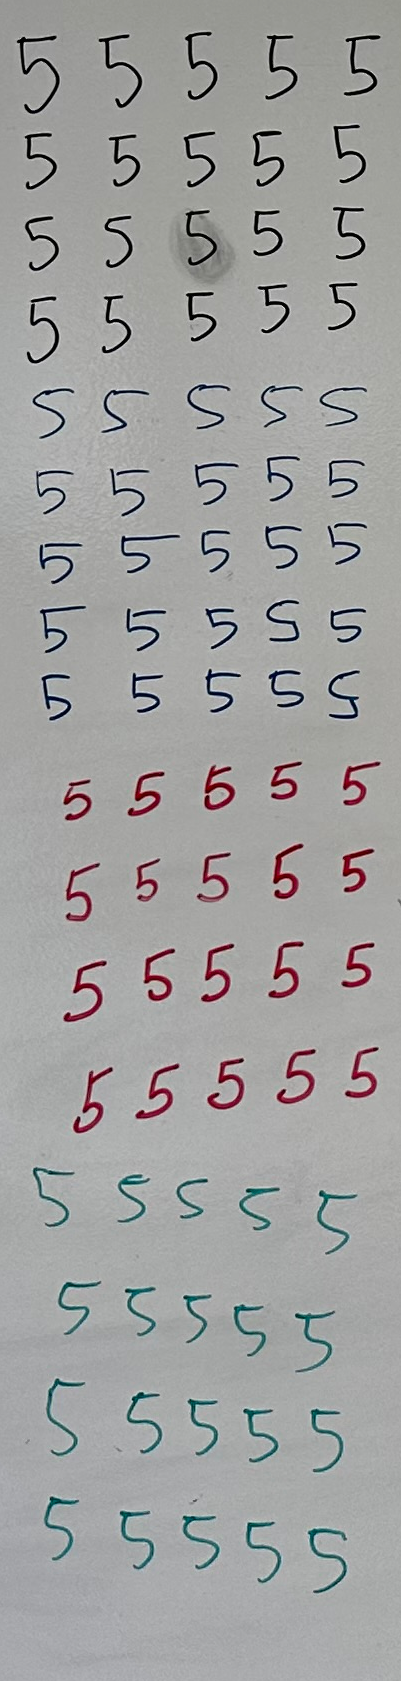 5 5 5 5 5
5 5 5 5 5
5 5 5 5 5
5 5 5 5 5
5 5 5 5 5
5 5 5 5 5
5 5 5 5 5
5 5 5 5 5
5 5 5 5 5
5 5 5 5 5
5 5 5 5 5
5 5 5 5 5
5 5 5 5 5
5 5 5 5 5
5 5 5 5 5
5 5 5 5 5
5 5 5 5 5